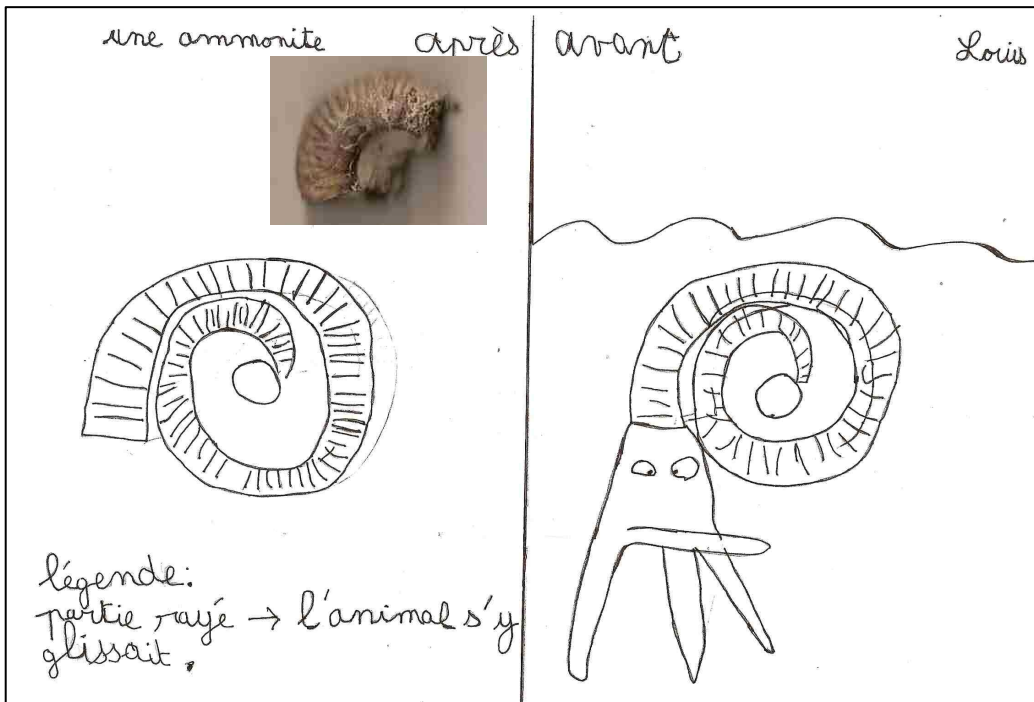 une ammonite
après
avant
Louis
légende:
partie rayé → l'animal s'y
glissait.